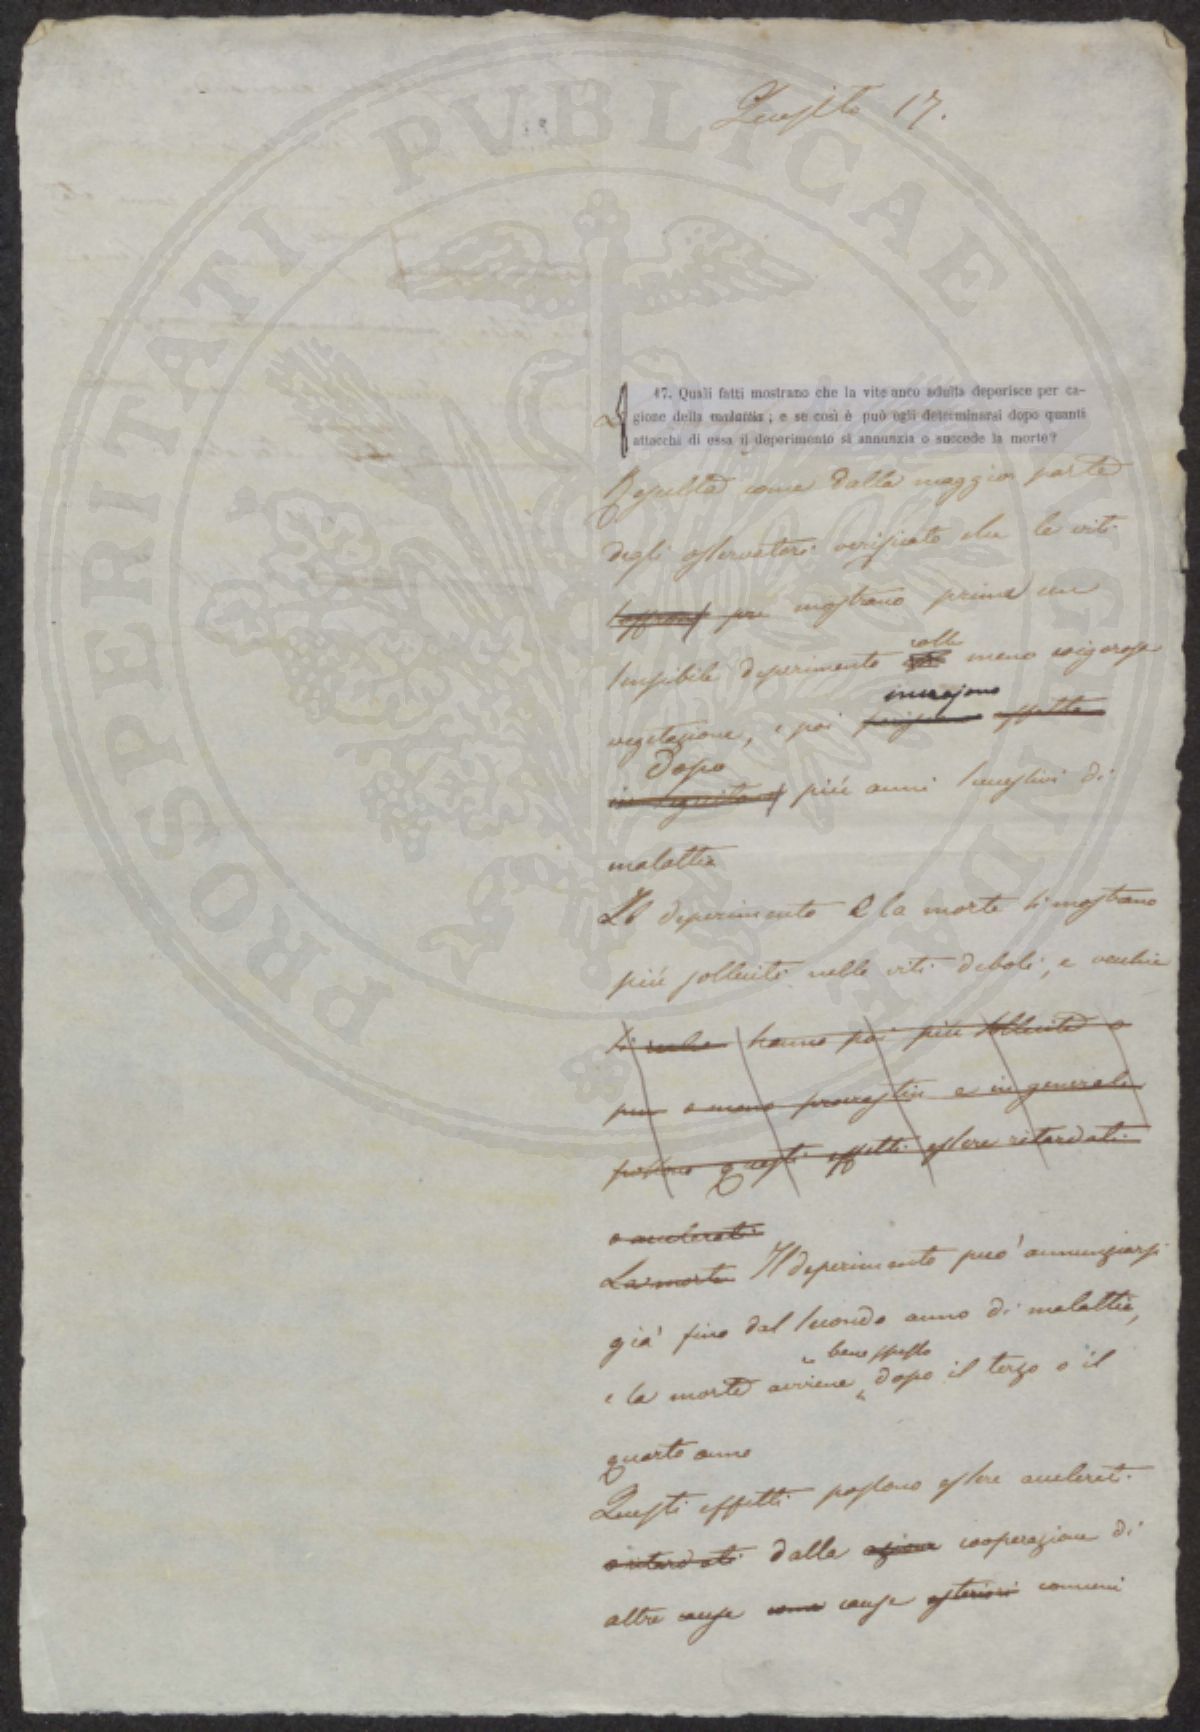 Quesito 17.
17. Quali fatti mostrano che la vite anco adulta deperisce per ca-
gione della malattia; e se così è può egli determinarsi dopo quanti
attacchi di essa il deperimento si annunzia o succede la morte?
Resulta come dalla maggior parte
degli osservatori verificato che le viti
soffrono pri mostrano prima un
sensibile deperimento colla meno vigorosa
vegetazione, e poi
dopo
in seguito a più anni successivi di
malattia
Il deperimento e la morte si mostrano
più solleciti nelle viti deboli, e vecchie
hanno poi più sollecita o
più o meno e in generale
possono questi effetti essere ritardati
o accelerati
La morte Il deperimento può annunziarsi
già fino dal secondo anno di malattia,
bene spesso
e la morte avviene, dopo il terzo o il
quarto anno
Questi effetti possono essere accelerati
o ritardati dalla azione cooperazione di
altre cause come cause esteriori comuni
PROSPERITATI PUBLICAE AUGENDAE